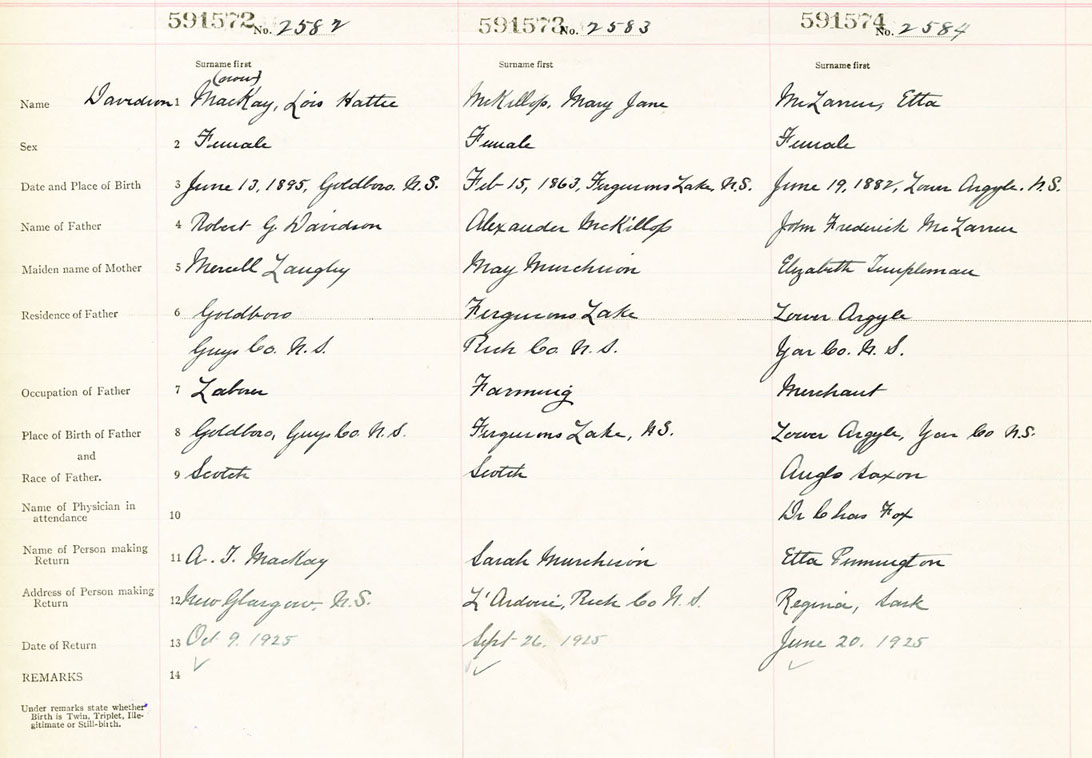 591572 No. 2582 591573 No. 2583 591574 No. 2584
Surname first Surname first Surname first
(now)
Name Davidson 1 MacKay, Lois Hattie McKillop, Mary Jane McLarren, Etta
Sex 2 Female Female Female
Date and Place of Birth 3 June 13, 1895, Goldboro, N.S. Feb 15, 1863, Fergusons Lake, N.S. June 19, 1882, Lower Argyle, N.S.
Name of Father 4 Robert G. Davidson Alexander McKillop John Frederick McLarren
Maiden name of Mother 5 Langley May Murchison Elizabeth Templeman
Residence of Father 6 Goldboro Fergusons Lake Lower Argyle
Guys Co. N.S. Rich Co. N.S. Yar Co. N.S.
Occupation of Father 7 Laborer Farming Merchant
Place of Birth of Father 8 Goldboro, Guys Co. N.S. Fergusons Lake, N.S. Lower Argyle, Yar Co N.S.
and
Race of Father. 9 Scotch Scotch Anglo Saxon
Name of Physician in
attendance 10 Dr Chas Fox
Name of Person making
Return 11 A. T. MacKay Sarah Murchison Etta
Address of Person making
Return 12 New Glasgow, N.S. L'Ardoise, Rich Co N.S. Regina, Sask
Date of Return 13 Oct 9. 1925 Sept 26. 1925 June 20. 1925
REMARKS 14
Under remarks state whether
Birth is Twin, Triplet, Ille-
gitimate or Still-birth.